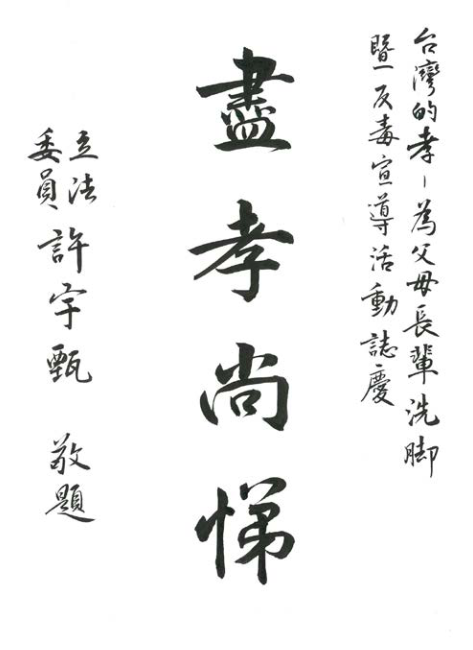 台灣的孝－為父母長輩洗腳
暨反毒宣導活動誌慶
盡孝尚悌
立法委員許宇甄 敬題